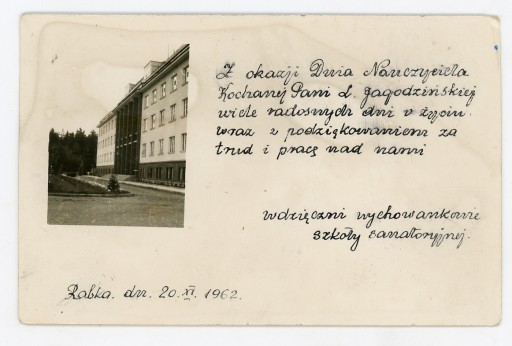 Z okazji Dnia Nauczyciela
Kochanej Pani L. Jagodzińskiej
wiele radosnych dni w życiu
wraz z podziękowaniem za
trud i pracę nad nami
wdzięczni wychowankowie
szkoły sanatoryjnej.
Rabka. dn. 20.XI. 1962.